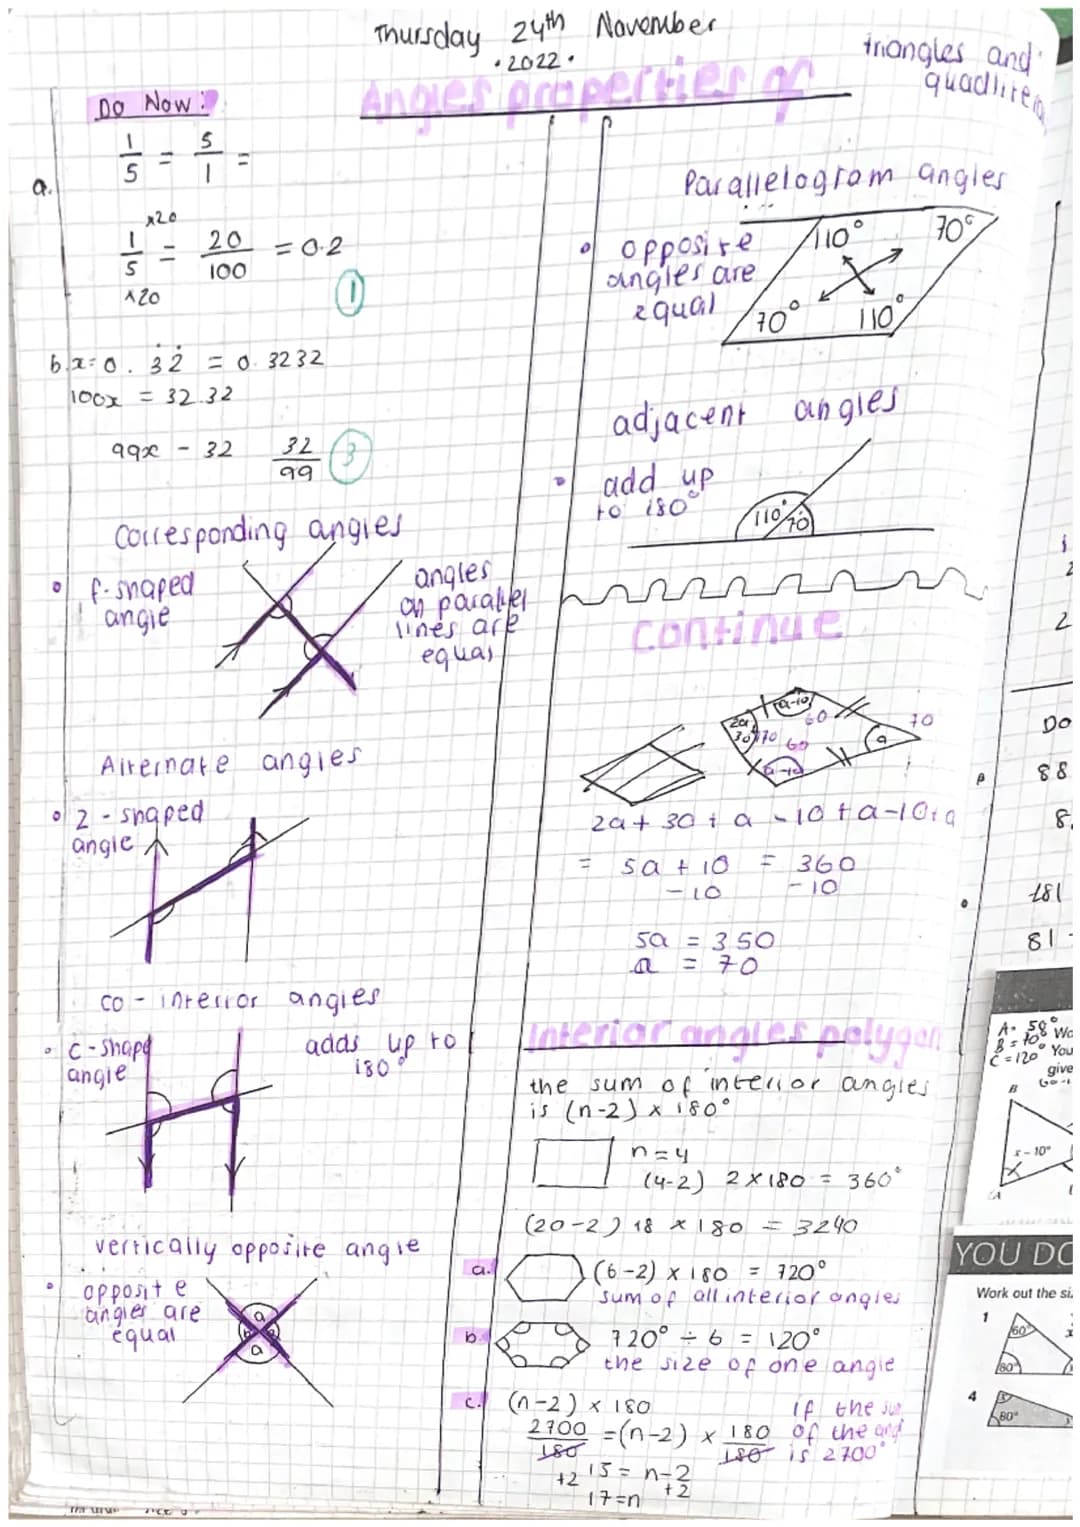 Thursday 24th November
·2022·
Angles properties of
triangles and
Do Now:
1/5 = 5/1 =
a.
×20
1/5 = 20/100 = 0.2
×20
1
b. x=0.3̇2̇ = 0.3232
100x = 32.32
99x - 32 32/99 3
Corresponding angles
f-shaped
angle
angles
on parallel
lines are
equal
Alternate angles
Z-shaped
angle
co-interior angles
C-shape
angle
adds up to
180°
vertically opposite angle
opposite
angles are
equal
a
a
Parallelogram angles
opposite
angles are
equal
110° 70°
70° 110°
adjacent angles
add up
to 180°
110° 70
continue
2a
30
a-10
60
70
60
a-10
a
70
2a + 30 + a - 10 + a - 10 + a
= 5a + 10 = 360
-10 -10
5a = 350
a = 70
Interior angles polygon
the sum of interior angles
is (n-2) × 180°
n=4
(4-2) 2×180 = 360°
(20-2) 18 × 180 = 3240
a. (6-2) × 180 = 720°
sum of all interior angles
b. 720° ÷ 6 = 120°
the size of one angle
c. (n-2) × 180
if the
of the
is 2700°
2700/180 = (n-2) × 180/180
+2 15 = n-2 +2
17=n
2
Do
88
8.
181
81
A= 58°
B = 70° You
C = 120° give
B
x - 10°
A
YOU DO
Work out the
1
60°
80°
4
80°